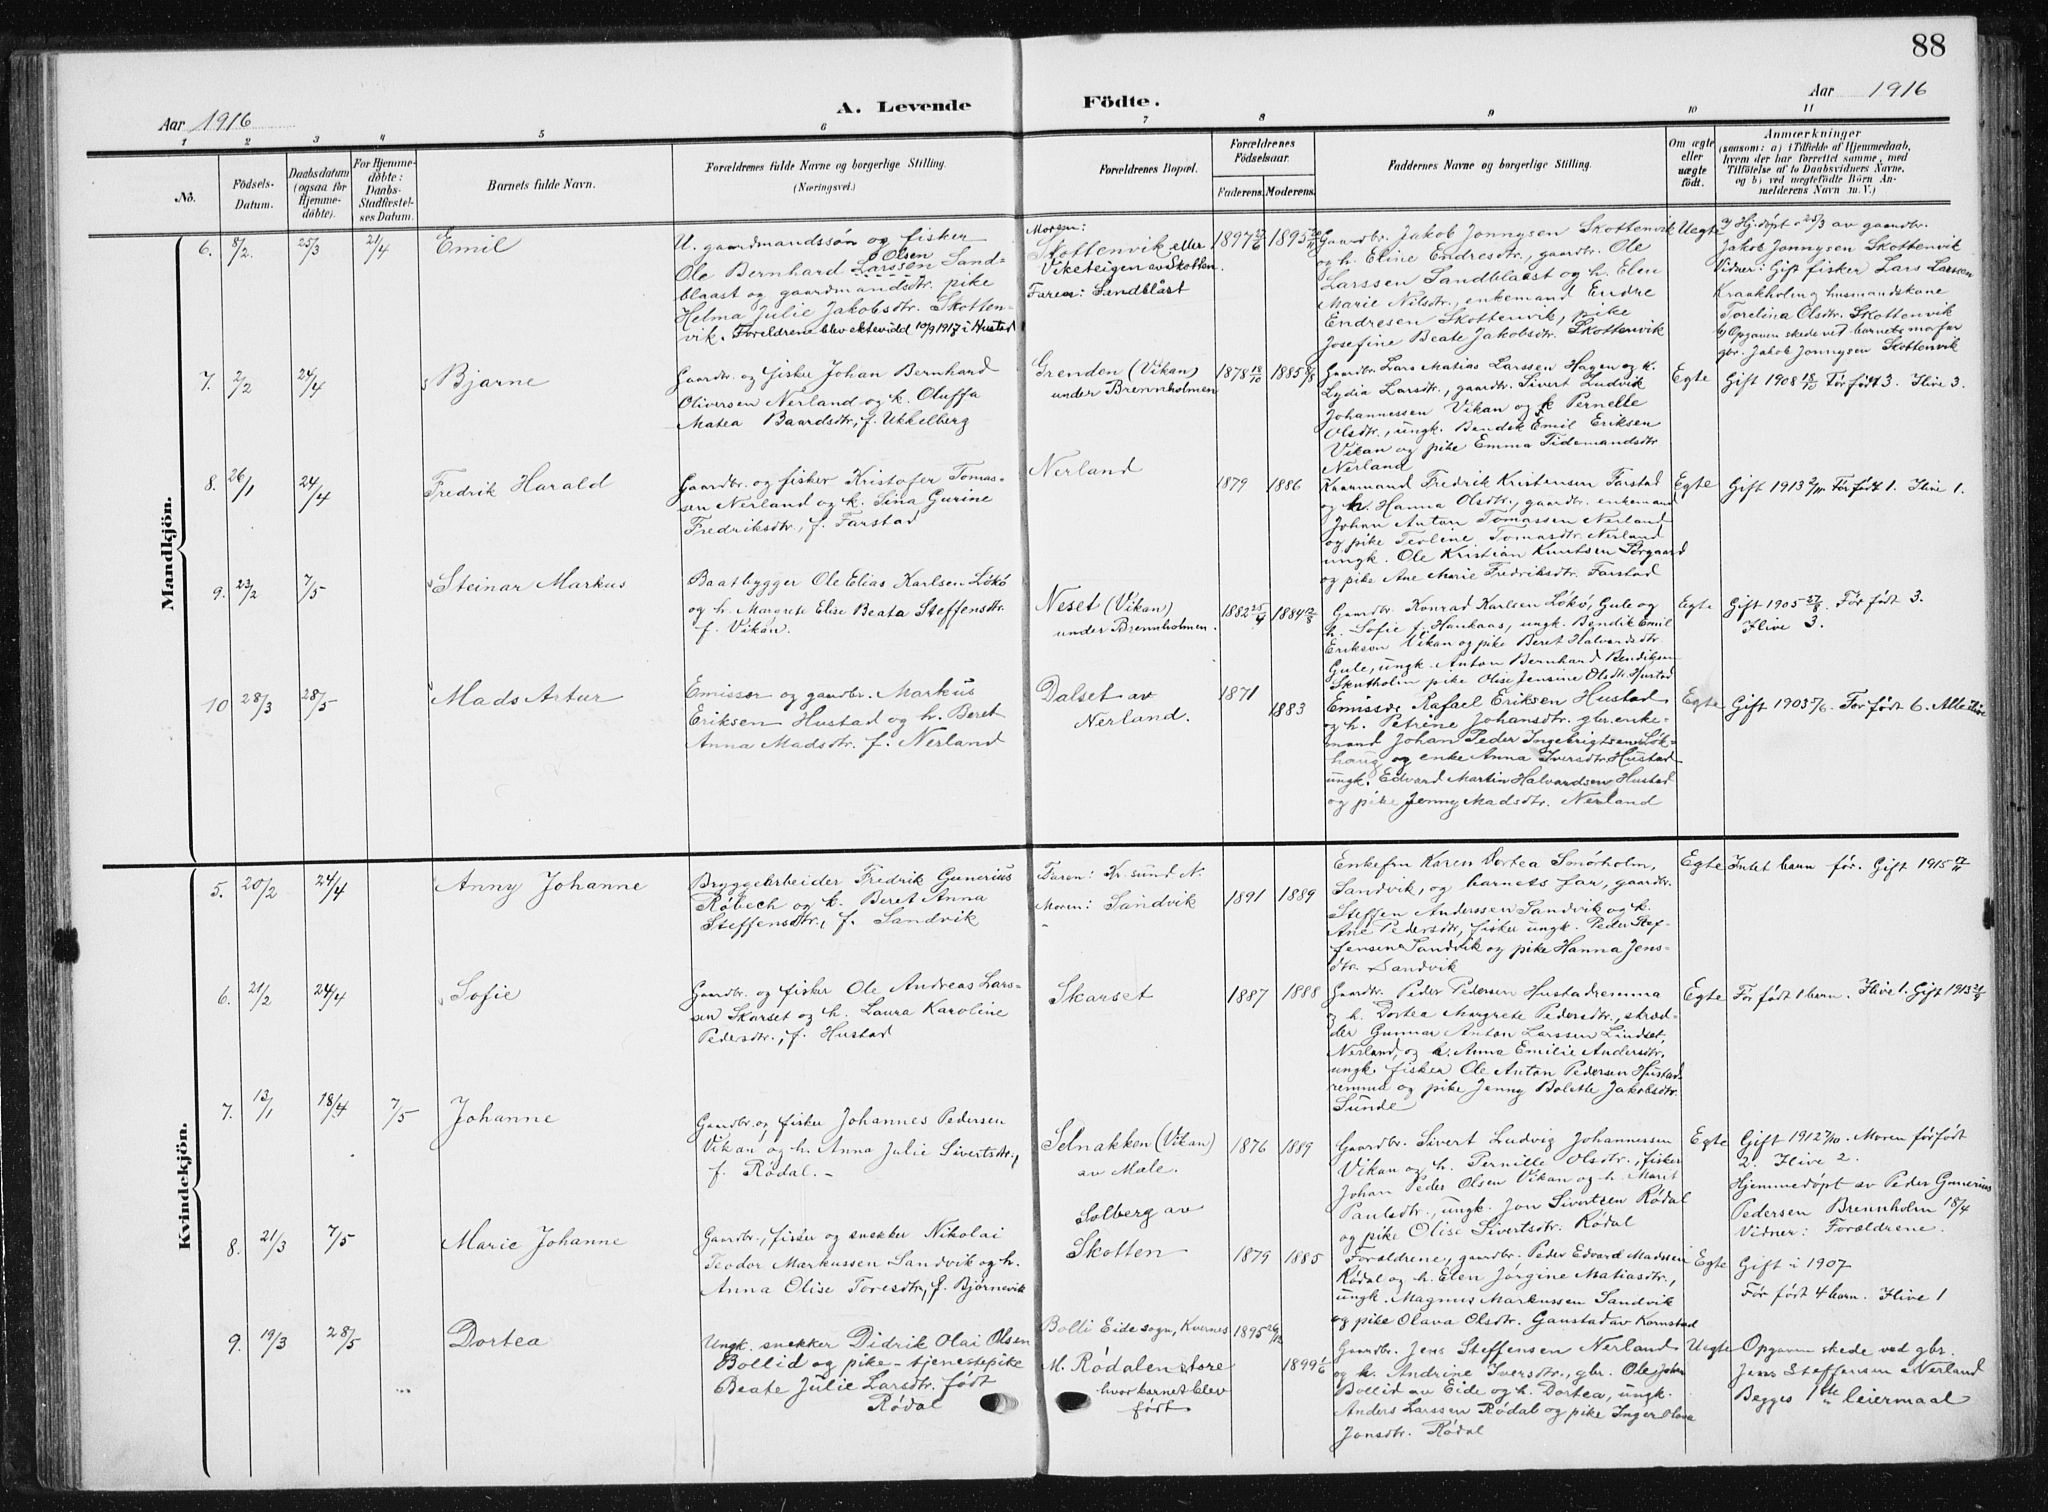 88
A. Levende Födte.
Aar 1916
Aar 1916
1 2 3 4 5 6 7 8 9 10 11
No.
Födsels-Datum.
Daabsdatum (ogsaa for Hjemme-døbte).
For Hjemme-døbte: Daabs-Stadfæstel-ses Datum.
Barnets fulde Navn.
Forældrenes fulde Navne og borgerlige Stilling.
(Næringsvei.)
Forældrenes Bopæl.
Forældrenes Födselsaar.
Faderens. Moderens.
Faddernes Navne og borgerlige Stilling.
Om ægte eller uægte födt.
Anmærkninger
(saasom: a) i Tilfælde af Hjemmedaab,
hvem der har forrettet samme, med
Tilföielse af to Daabsvidners Navne,
og b) ved uægtefödte Börn An-
melderens Navn m. V.)
Mandkjön.
6. 8/2. 25/3 24/4 Emil
U. gaardmandssøn og fisker
Olsen
Ole Bernhard Larssen Sand-
blaast og gaardmandsdtr. pike
Helma Julie Jakobsdtr. Skotten-
vik. Foreldrene blev ektevidd 10/9 1917 i Hustad
Moren:
Skottenvik eller
Viketeigen av Skotten.
Faren: Sandblåst
Gaardbr. Jakob Jonnysen Skottenvik
og h. Eline Endresdtr., gaardbr. Ole
Larssen Sandblaast og h. Elen
Marie Nilsdtr., enkemand Endre
Endresen Skottenvik, pike
Josefine Beate Jakobsdtr. Skottenvik
Uegte
a) Hj.døpt d 25/3 av gaardbr.
Jakob Jonnysen Skottenvik
Vidner: Gift fisker Lars Larssen
Kraakholm og husmandskone
Torelina Olsdtr. Skottenvik
b) Opgaven skede vet barnets morfar
gbr. Jakob Jonnysen Skottenvik
7. 2/2 24/4 Bjarne
Gaardbr. og fisker Johan Bernhard
Oliversen Nerland og k. Oluffa
Matea Baardsdtr., f. Ukkelberg
Grenden (Vikan)
under Brennholmen
1878 18/10 1885
Gaardbr. Lars Matias Larssen Hagen og k.
Lydia Larsdtr., gaardbr. Sivert Ludvik
Johannessen Vikan og k Pernelle
Olsdtr., ungk. Bendik Emil Eriksen
Vikan og pike Emma Tidemandsdtr
Nerland
Egte Gift 1908 18/10 Før født 3. Ilive 3.
8. 26/1 24/4 Fredrik Harald
Gaardbr. og fisker Kristofer Tomas-
sen Nerland og k. Sina Gurine
Fredriksdtr., f. Farstad
Nerland
1879 1886
Kaarmand Fredrik Kristensen Farstad
og h. Hanna Olsdtr., gaardbr. enkemand
Johan Anton Tomassen Nerland
og pike Teoline Tomasdtr. Nerland
ungk. Ole Kristian Knutsen Sørgaard
og pike Ane Marie Fredriksdtr. Farstad
Egte Gift 1913 Før født 1. Ilive 1.
9. 23/2 7/5 Steinar Markus
Baatbygger Ole Elias Karlsen Løkø
og h. Margrete Elise Beata Steffensdtr.
f. Vikan.
Neset (Vikan)
under Brennholmen.
1882 1884 12/8
Gaardbr. Konrad Karlsen Løkø, Gule og
h. Sofie f. Haukaas, ungk. Bendik Emil
Eriksen Vikan og pike Beret Halvardsdtr.
Gule, ungk. Anton Bernhard Bendiksen
Skutholm pike Olise Jensine Olsdtr. Hustad
Egte Gift 1905 27/8. Før født 3.
Ilive 3.
10 28/3 28/5 Mads Artur
Emissær og gaardbr. Markus
Eriksen Hustad og h. Beret
Anna Madsdtr. f. Nerland
Dalset av
Nerland.
1871 1883
Emissær Rafael Eriksen Hustad
og h. Petrine Johansdtr. gbr. enke-
mand Johan Peder Ingebrigtsen Løk-
haug og enke Anna Iversdtr Hustad
ungk. Edvard Martin Halvardsen Hustad
og pike Jenny Madsdtr. Nerland
Egte Gift 1903 Før født 6. Alle Ilive
Kvindekjön.
5. 20/2 24/4 Anny Johanne
Bryggearbeider Fredrik Gunerius
Røbech og k. Beret Anna
Steffensdtr., f. Sandvik
Faren: Kr.sund N.
Moren: Sandvik
1891 1889
Enkefru Karen Dortea Smørholm,
Sandvik, og barnets far, gaardbr.
Steffen Anderssen Sandvik og k.
Ane Pedersdtr, fisker ungk. Peder Stef-
fensen Sandvik og pike Hanna Jens-
dtr. Sandvik
Egte Intet barn før. Gift 1915
6. 21/2 24/4 Sofie
Gaardbr. og fisker Ole Andreas Lars-
sen Skarset og h. Laura Karoline
Pedersdtr., f. Hustad
Skarset
1887 1888
Gaardbr. Peder Pedersen Hustadremma
og h. Dortea Margrete Pedersdtr., skræd-
der Gunnar Anton Larssen Lindset,
Nerland, og h. Anna Emilie Andersdtr.,
ungk. fisker Ole Anton Pedersen Hustad-
remma og pike Jenny Bolette Jakobsdtr.
Sunde
Egte Før født 1 barn. Ilive 1. Gift 1913
7. 13/1 18/4 7/5 Johanne
Gaardbr. og fisker Johannes Pedersen
Vikan og h. Anna Julie Sivertsdtr.,
f. Rødal. -
Selnakken (Vikan)
av Mæle.
1876 1889
Gaardbr. Sivert Ludvig Johannessen
Vikan og h. Pernille Olsdtr., fisker
Johan Peder Olsen Vikan og h. Marit
Paulsdtr., ungk. Jon Sivertsen Rødal
og pike Olise Sivertsdtr. Rødal
Egte Gift 1912 7/10. Moren før født
2. Ilive 2.
Hjemmedøpt av Peder Gunerius
Pedersen Brennholm 18/4
Vidner: Forældrene.
8. 21/3 7/5 Marie Johanne
Gaardbr., fisker og snekker Nikolai
Teodor Markussen Sandvik og h.
Anna Olise Toresdtr., f. Bjørnevik
Solberg av
Skotten
1879 1885
Forældrene, gaardbr. Peder Edvard Madssen
Rødal og h. Elen Jørgine Matiasdtr.,
ungk. Magnus Markussen Sandvik
og pike Olava Olsdtr. Gaustad av Kornstad
Egte Gift i 1907
Før født 4 barn. Ilive 1
9. 19/3 28/5 Dortea
Ungk. snekker Didrik Olai Olsen
Bollid og pike - tjenestepike
Beate Julie Larsdtr. født
Rødal
Bolli Eide sogn, Kvernes
M. Rødalen store
hvor barnet blev
født
1895 1899 1/6
Gaardbr. Jens Steffensen Nerland
og h. Andrine Iversdtr., gbr. Ole Johan
Bollid av Eide og h. Dortea, ungk.
Anders Larssen Rødal og pike Inger Olava
Jonsdtr. Rødal
Uegte Opgaven skede ved gbr.
Jens Steffensen Nerland
Begges 1ste leiermaal